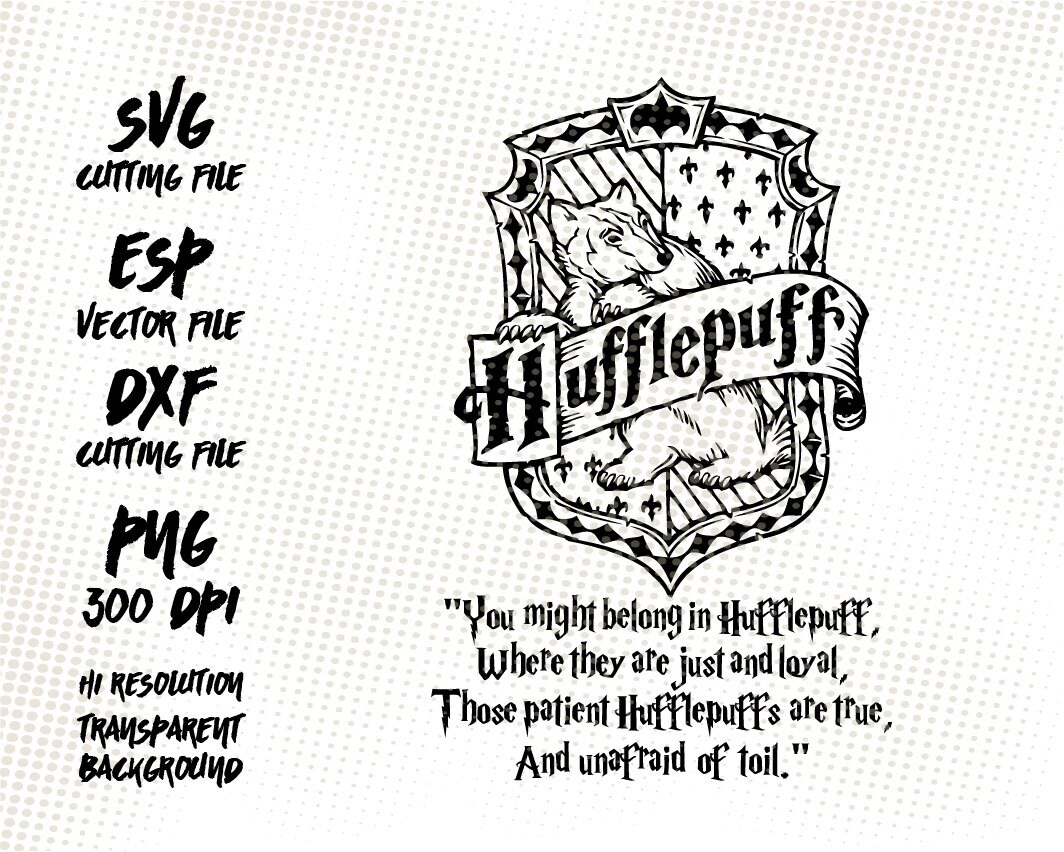 SVG
CUTTING FILE
ESP
VECTOR FILE
DXF
CUTTING FILE
PNG
300 DPI
HI RESOLUTION
TRANSPARENT
BACKGROUND
Hufflepuff
"You might belong in Hufflepuff,
Where they are just and loyal,
Those patient Hufflepuffs are true,
And unafraid of toil."